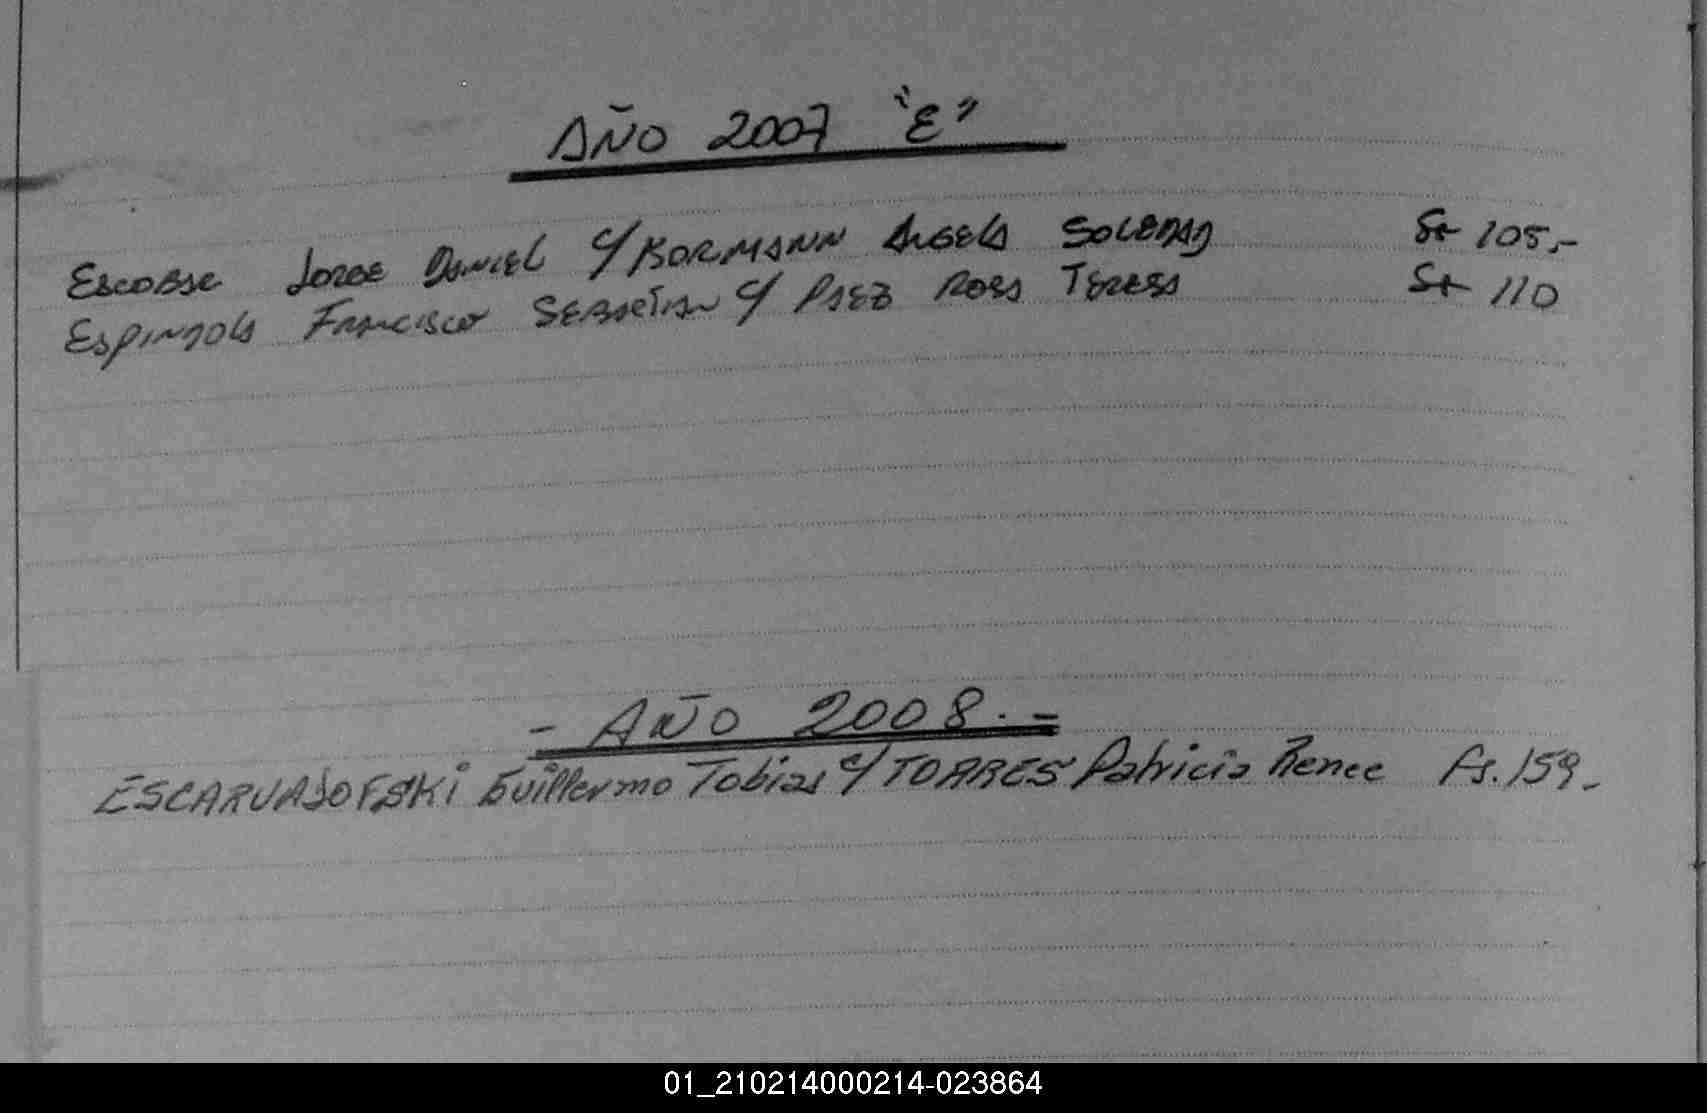 AÑO 2007 "E"
Escobar Jorge Daniel c/ Bormann Angela Soledad 105.-
Espindola Francisco Sebastian c/ Paez Rosa Teresa 110
- AÑO 2008.-
Guillermo Tobias c/ TORRES Patricia Renee Fs. 159.-
01_210214000214-023864